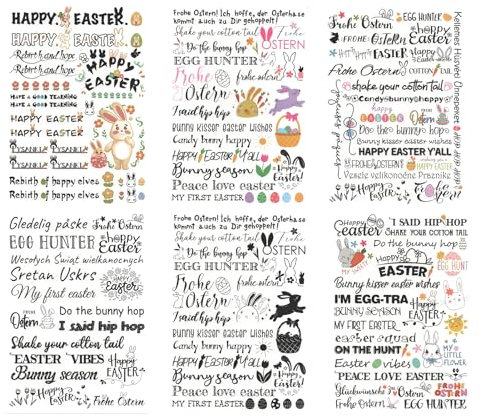 HAPPY EASTER.
HAPPY EASTER.
Rebirth and hope
Rebirth and hope
HAPPY EASTER
HAVE A GOOD TEARNING
HAVE A GOOD TEARNING
HAPPY EASTER
HAPPY EASTER
PYSANKA
PYSANKA
PYSANKA
PYSANKA
Rebirth of happy elves
Rebirth of happy elves
Frohe Ostern! Ich hoffe, der Osterhase
kommt auch zu Dir gehoppelt!
Shake your cotton tail
Frohe
OSTERN
Do the bunny hop
EGG HUNTER
Frohe
Ostern
frohe ostern
I said hip hop
Bunny kisser easter wishes
Candy bunny happy
HAPPY EASTER Y'ALL
Bunny season
Peace love easter
MY FIRST EASTER
Frohe Ostern
EGG HUNTER
FROHE OSTERN
Happy Easter
HIP HIP HIP
EASTER
Frohe Ostern
COTTON TAIL
Kellemes Húsvéti Ünnepeket
shake your cotton tail
Candy bunny happy
HAPPY EASTER
OSTERN
EASTER
Do the bunny hop
Bunny kisser easter wishes
HAPPY EASTER Y'ALL
FROHE OSTERN
Happy Easter
Vesele velikonočne Praznike
Happy Easter
Frohe Ostern
Gledelig påske
Frohe Ostern
EGG HUNTER
happy Easter
Wesołych Świąt wielkanocnych
Sretan Uskrs
HAPPY EASTER
My first easter
FROHE Ostern
Do the bunny hop
I said hip hop
Shake your cotton tail
EASTER VIBES
Happy Easter
Bunny season
Happy Easter
Frohe Ostern
Frohe Ostern! Ich hoffe, der Osterhase
kommt auch zu Dir gehoppelt!
Shake your cotton tail
Frohe
OSTERN
Do the bunny hop
EGG HUNTER
Frohe
Ostern
frohe ostern
I said hip hop
Bunny kisser easter wishes
Candy bunny happy
HAPPY EASTER Y'ALL
Bunny season
Peace love easter
MY FIRST EASTER
Happy easter
I SAID HIP HOP
SHAKE YOUR COTTON TAIL
Do the bunny hop
MY SWEET
HAPPY
EASTER
EGG HUNT
Bunny kisser easter wishes
I'M EGG-TRA
Happy Easter
BUNNY SEASON
MY FIRST EASTER
easter squad
ON THE HUNT
MY LITTLE FLOWER
Easter vibes
PEACE LOVE EASTER
Glückwünsche
FROHE OSTERN
Happy Easter